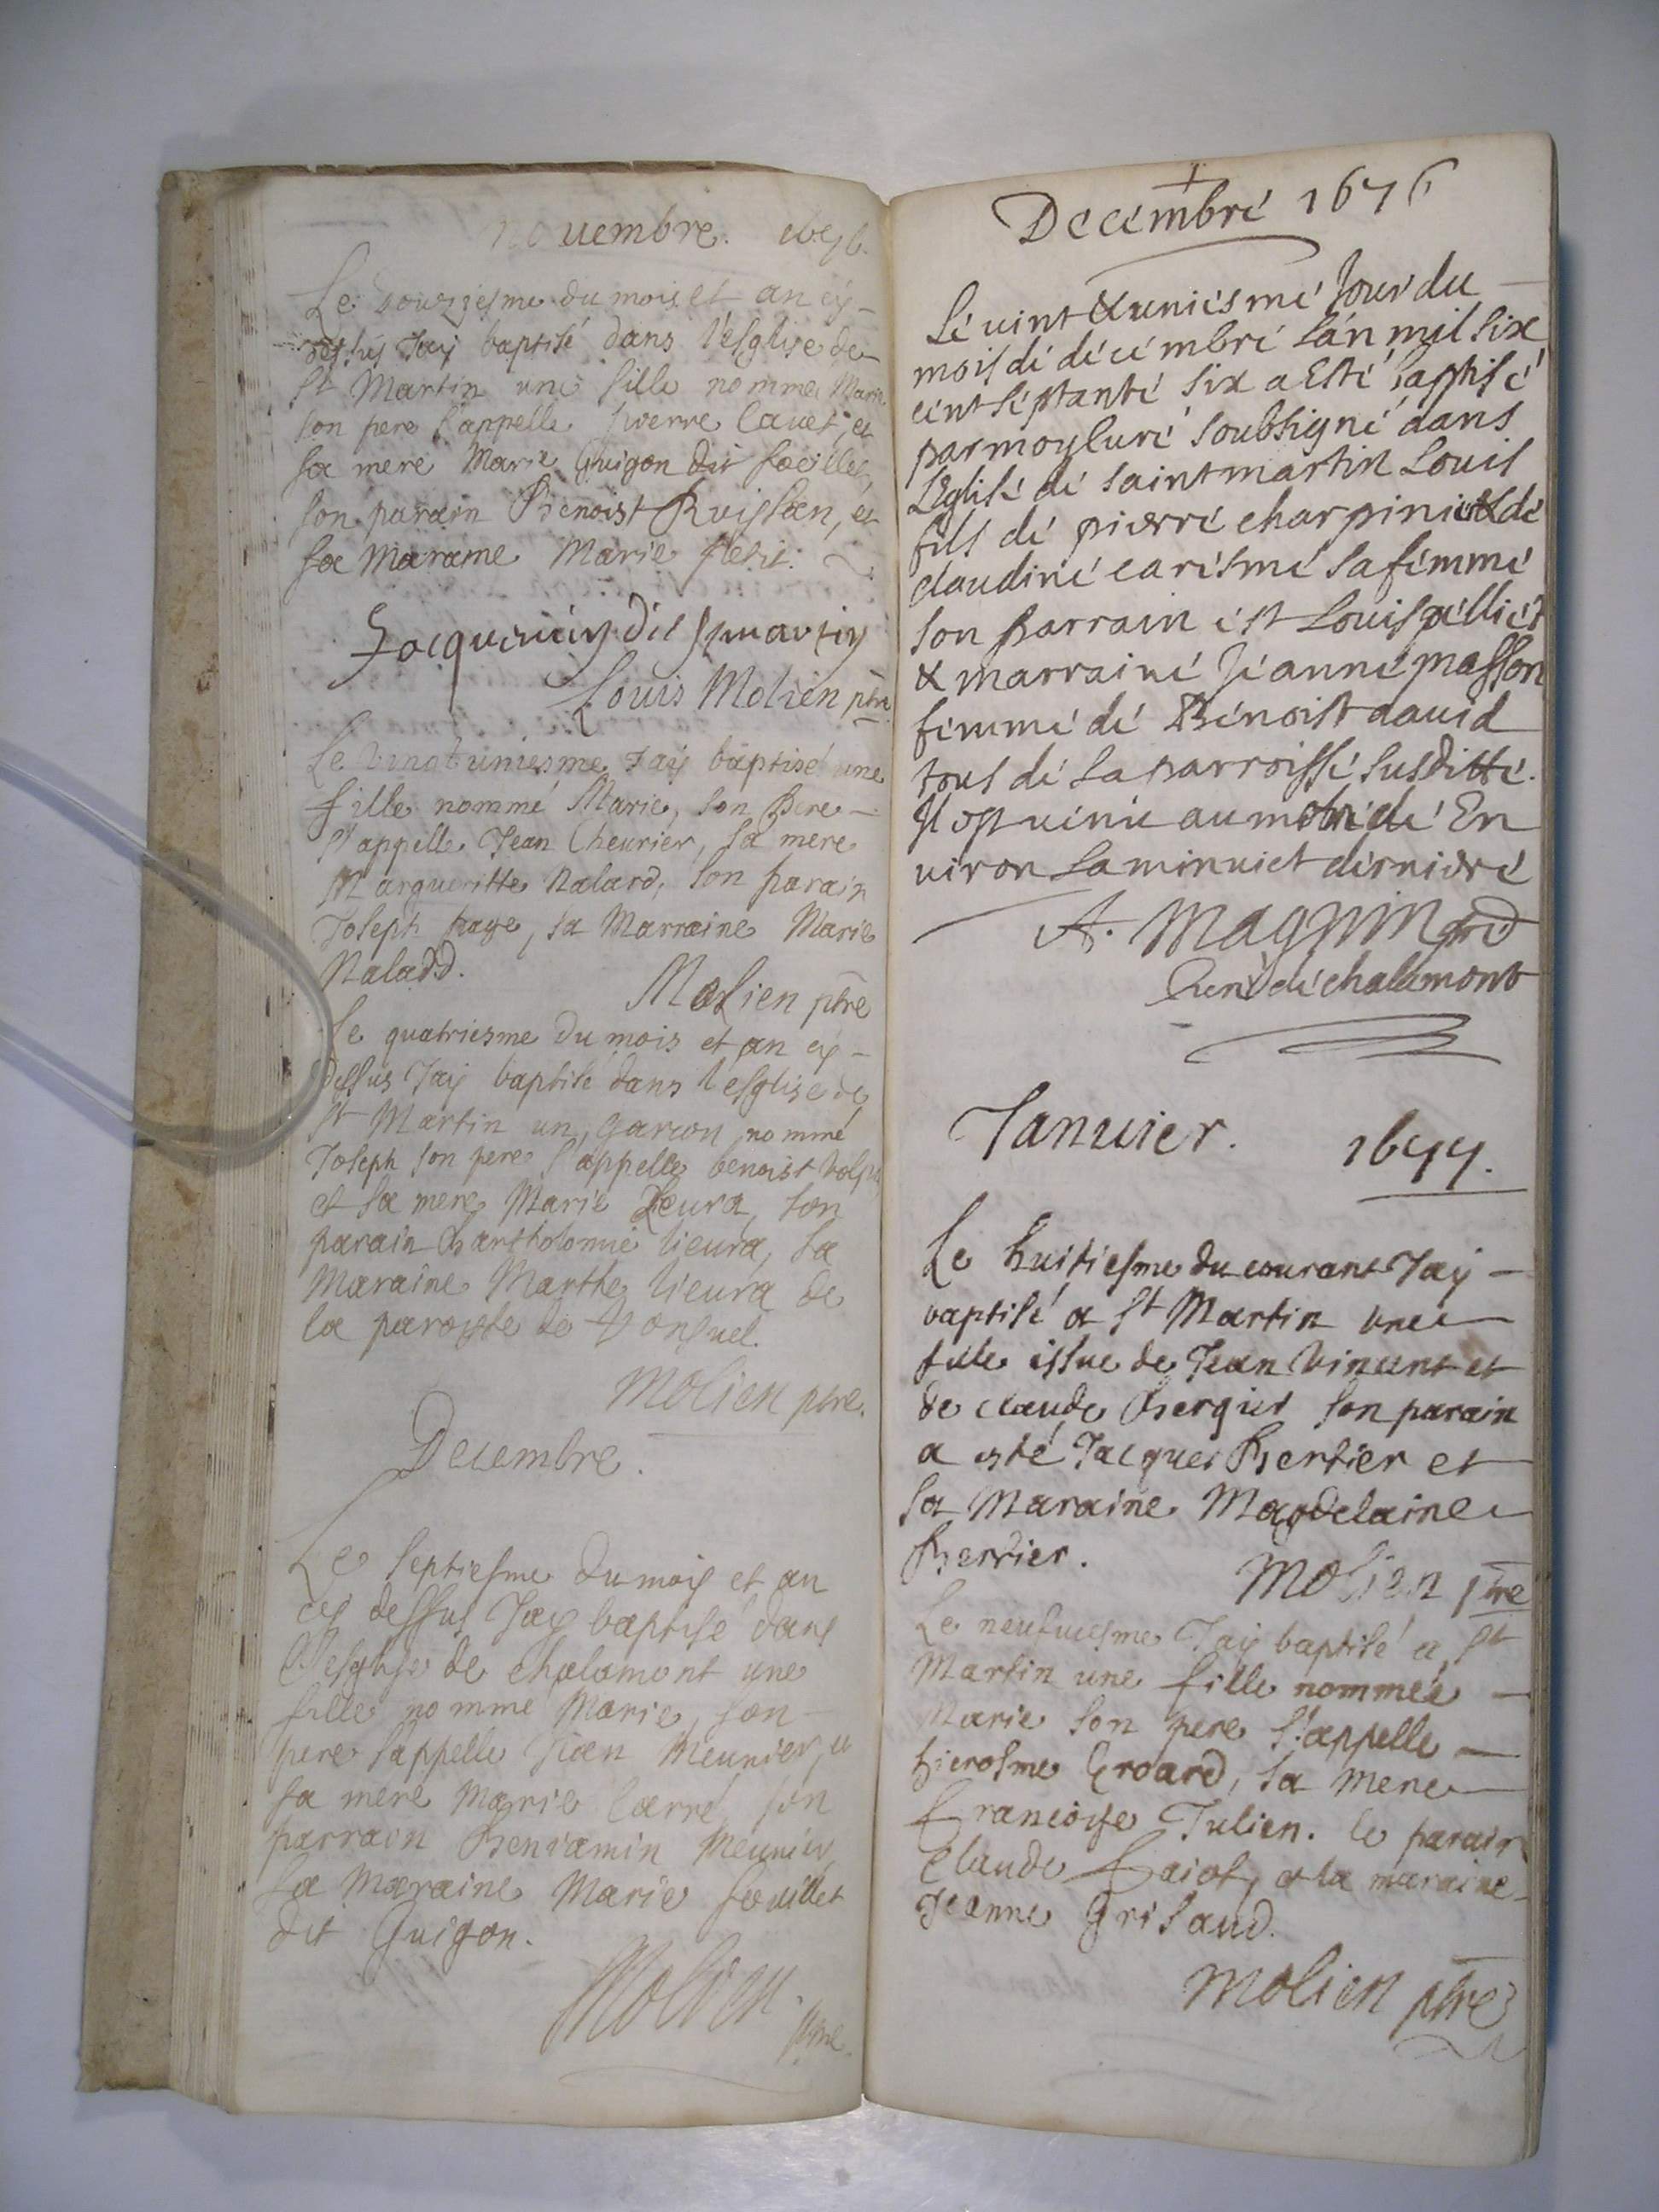 nouembre. 1676.
Le douziesme du mois et an cy –
dessus Jay baptisé dans l'esglise de
St Martin une fille nommeé Marie
son pere s'appelle pierre Cauet, et
sa mere Marie Guigon dit
son parain Benoist Buisson, et
sa Maraine Marie petit.
Jacquemin dit St martin
Louis Molien ptre
Le vingt uniesme Jay baptisé une
fille nommé Marie, son Pere –
s'appelle Jean Cheurier, sa mere
Margueritte Nalard, son parain
Joseph page, sa Marraine Marie
Nalard.
Molien ptre
Le quatriesme du mois et an cy –
dessus Jay baptisé dans l'esglise de
St Martin un garcon nommé
Joseph son pere s'appelle benoist
et sa mere Marie Lieura, son
parain Bartholomie lieura, sa
Maraine Marthe lieura de
la paroisse de
Molien ptre.
Decembre.
Le Septiesme du mois et an
cy dessus Jay baptisé dans
l'esglise de chalamont une
fille nommé Marie, son –
pere s'appelle Jean Meunier, et
sa mere Marie Carré, son
parrain Beniamin Meunier,
sa Maraine Marie fouillet
dit Guigon.
Molien. ptre.
+
Décémbré 1676
Lé uint & uniésmé Jour du –
mois dé décémbré L'an mil six
cént séptanté six a Esté Baptisé
par moy Curé soubsigné dans
L'Eglisé dé saint martin Louis
fils dé piérré charpiniét & dé
claudiné carismé sa fémmé
son Parrain ést Louis péllict
& marrainé Jéanné masson
fémmé dé Bénoist dauid
tous dé La Parroissé susditté.
Il est uénu au monde En
uiron La minuict dérniéré
A. Magnin prd
Curé dé chalamont
Januier. 1677.
Le huitiesme du courant Jay –
baptisé a St Martin une
fille issue de Jean Vincent et
de claude Bergier son parain
a esté Jacques Bertier et
sa Maraine Magdelaine
Bertier.
Molien ptre
Le neufuiesme Jay baptisé a St
Martin une fille nommeé –
Marie son pere s'appelle –
hierosme Groard, sa mere
francoise Julien. le parain
Claude faiot, et la maraine
Jeanne Grisaud.
Molien ptre